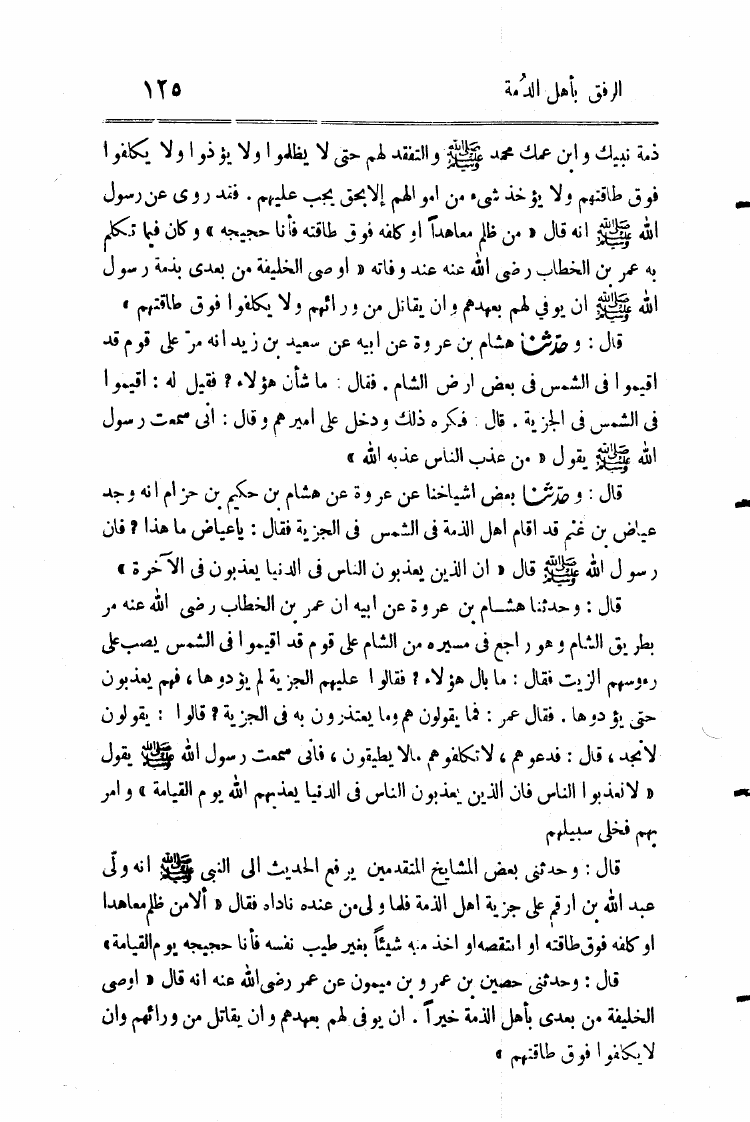 الرفق بأهل الذمة ١٢٥
ذمة نبيك وابن عمك محمد ﷺ والتفقد لهم حتى لا يظلموا ولا يؤذوا ولا يكلفوا
فوق طاقتهم ولا يؤخذ شىء من اموالهم إلا بحق يجب عليهم . فقد روى عن رسول
الله ﷺ انه قال « من ظلم معاهداً او كلفه فوق طاقته فأنا حجيجه » وكان فيما تكلم
به عمر بن الخطاب رضى الله عنه عند وفاته « اوصى الخليفة من بعدى بذمة رسول
الله ﷺ ان يوفي لهم بعهدهم وان يقاتل من ورائهم ولا يكلفوا فوق طاقتهم »
قال : وحدثنا هشام بن عروة عن ابيه عن سعيد بن زيد انه مرّ على قوم قد
اقيموا فى الشمس فى بعض ارض الشام . فقال : ما شأن هؤلاء ? فقيل له : اقيموا
فى الشمس فى الجزية . قال : فكره ذلك ودخل على اميرهم وقال : انى سمعت رسول
الله ﷺ يقول « من عذب الناس عذبه الله »
قال : وحدثنا بعض اشياخنا عن عروة عن هشام بن حكيم بن حزام انه وجد
عياض بن غنم قد اقام اهل الذمة فى الشمس فى الجزية فقال : ياعياض ما هذا ? فان
رسول الله ﷺ قال « ان الذين يعذبون الناس فى الدنيا يعذبون فى الآخرة »
قال : وحدثنا هشام بن عروة عن ابيه ان عمر بن الخطاب رضى الله عنه مر
بطريق الشام وهو راجع فى مسيره من الشام على قوم قد اقيموا فى الشمس يصب على
رءوسهم الزيت فقال : ما بال هؤلاء ? فقالوا عليهم الجزية لم يؤدوها ، فهم يعذبون
حتى يؤدوها . فقال عمر : فما يقولون هم وما يعتذرون به فى الجزية ? قالوا : يقولون
لانجد ، قال : فدعوهم ، لاتكلفوهم مالا يطيقون ، فأنى سمعت رسول الله ﷺ يقول
« لاتعذبوا الناس فان الذين يعذبون الناس فى الدنيا يعذبهم الله يوم القيامة » وامر
بهم فخلى سبيلهم
قال : وحدثنى بعض المشايخ المتقدمين يرفع الحديث الى النبى ﷺ انه ولّى
عبد الله بن ارقم على جزية اهل الذمة فلما ولى من عنده ناداه فقال « ألا من ظلم معاهدا
او كلفه فوق طاقته او انتقصه او اخذ منه شيئاً بغير طيب نفسه فأنا حجيجه يوم القيامة »
قال : وحدثنى حصين بن عمرو بن ميمون عن عمر رضى الله عنه انه قال « اوصى
الخليفة من بعدى بأهل الذمة خيراً . ان يوفى لهم بعهدهم وان يقاتل من ورائهم وان
لا يكلفوا فوق طاقتهم »